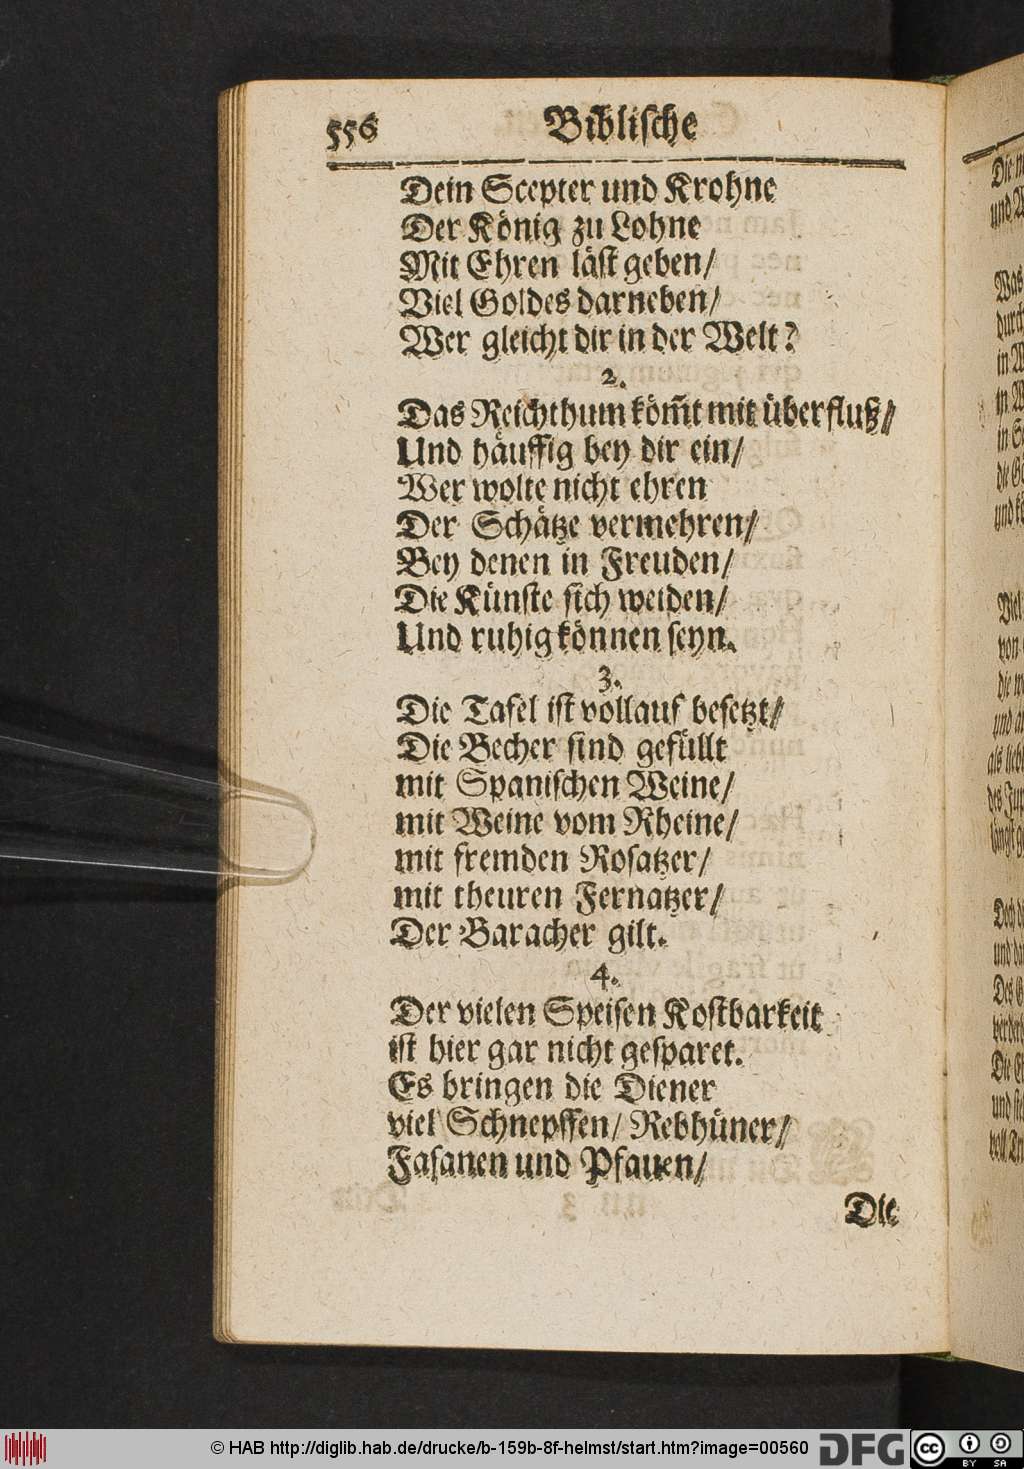 556 Biblische
Dein Scepter und Krohne
Der König zu Lohne
Mit Ehren läst geben/
Viel Goldes darneben/
Wer gleicht dir in der Welt?
2.
Das Reichthum köm̃t mit überfluß/
Und häuffig bey dir ein/
Wer wolte nicht ehren
Der Schätze vermehren/
Bey denen in Freuden/
Die Künste sich weiden/
Und ruhig können seyn.
3.
Die Tafel ist vollauf besetzt/
Die Becher sind gefüllt
mit Spanischen Weine/
mit Weine vom Rheine/
mit fremden Rosatzer/
mit theuren Fernatzer/
Der Baracher gilt.
4.
Der vielen Speisen Kostbarkeit
ist hier gar nicht gesparet.
Es bringen die Diener
viel Schnepffen/ Rebhüner/
Fasanen und Pfauen/
Die
© HAB http://diglib.hab.de/drucke/b-159b-8f-helmst/start.htm?image=00560 DFG cc BY SA